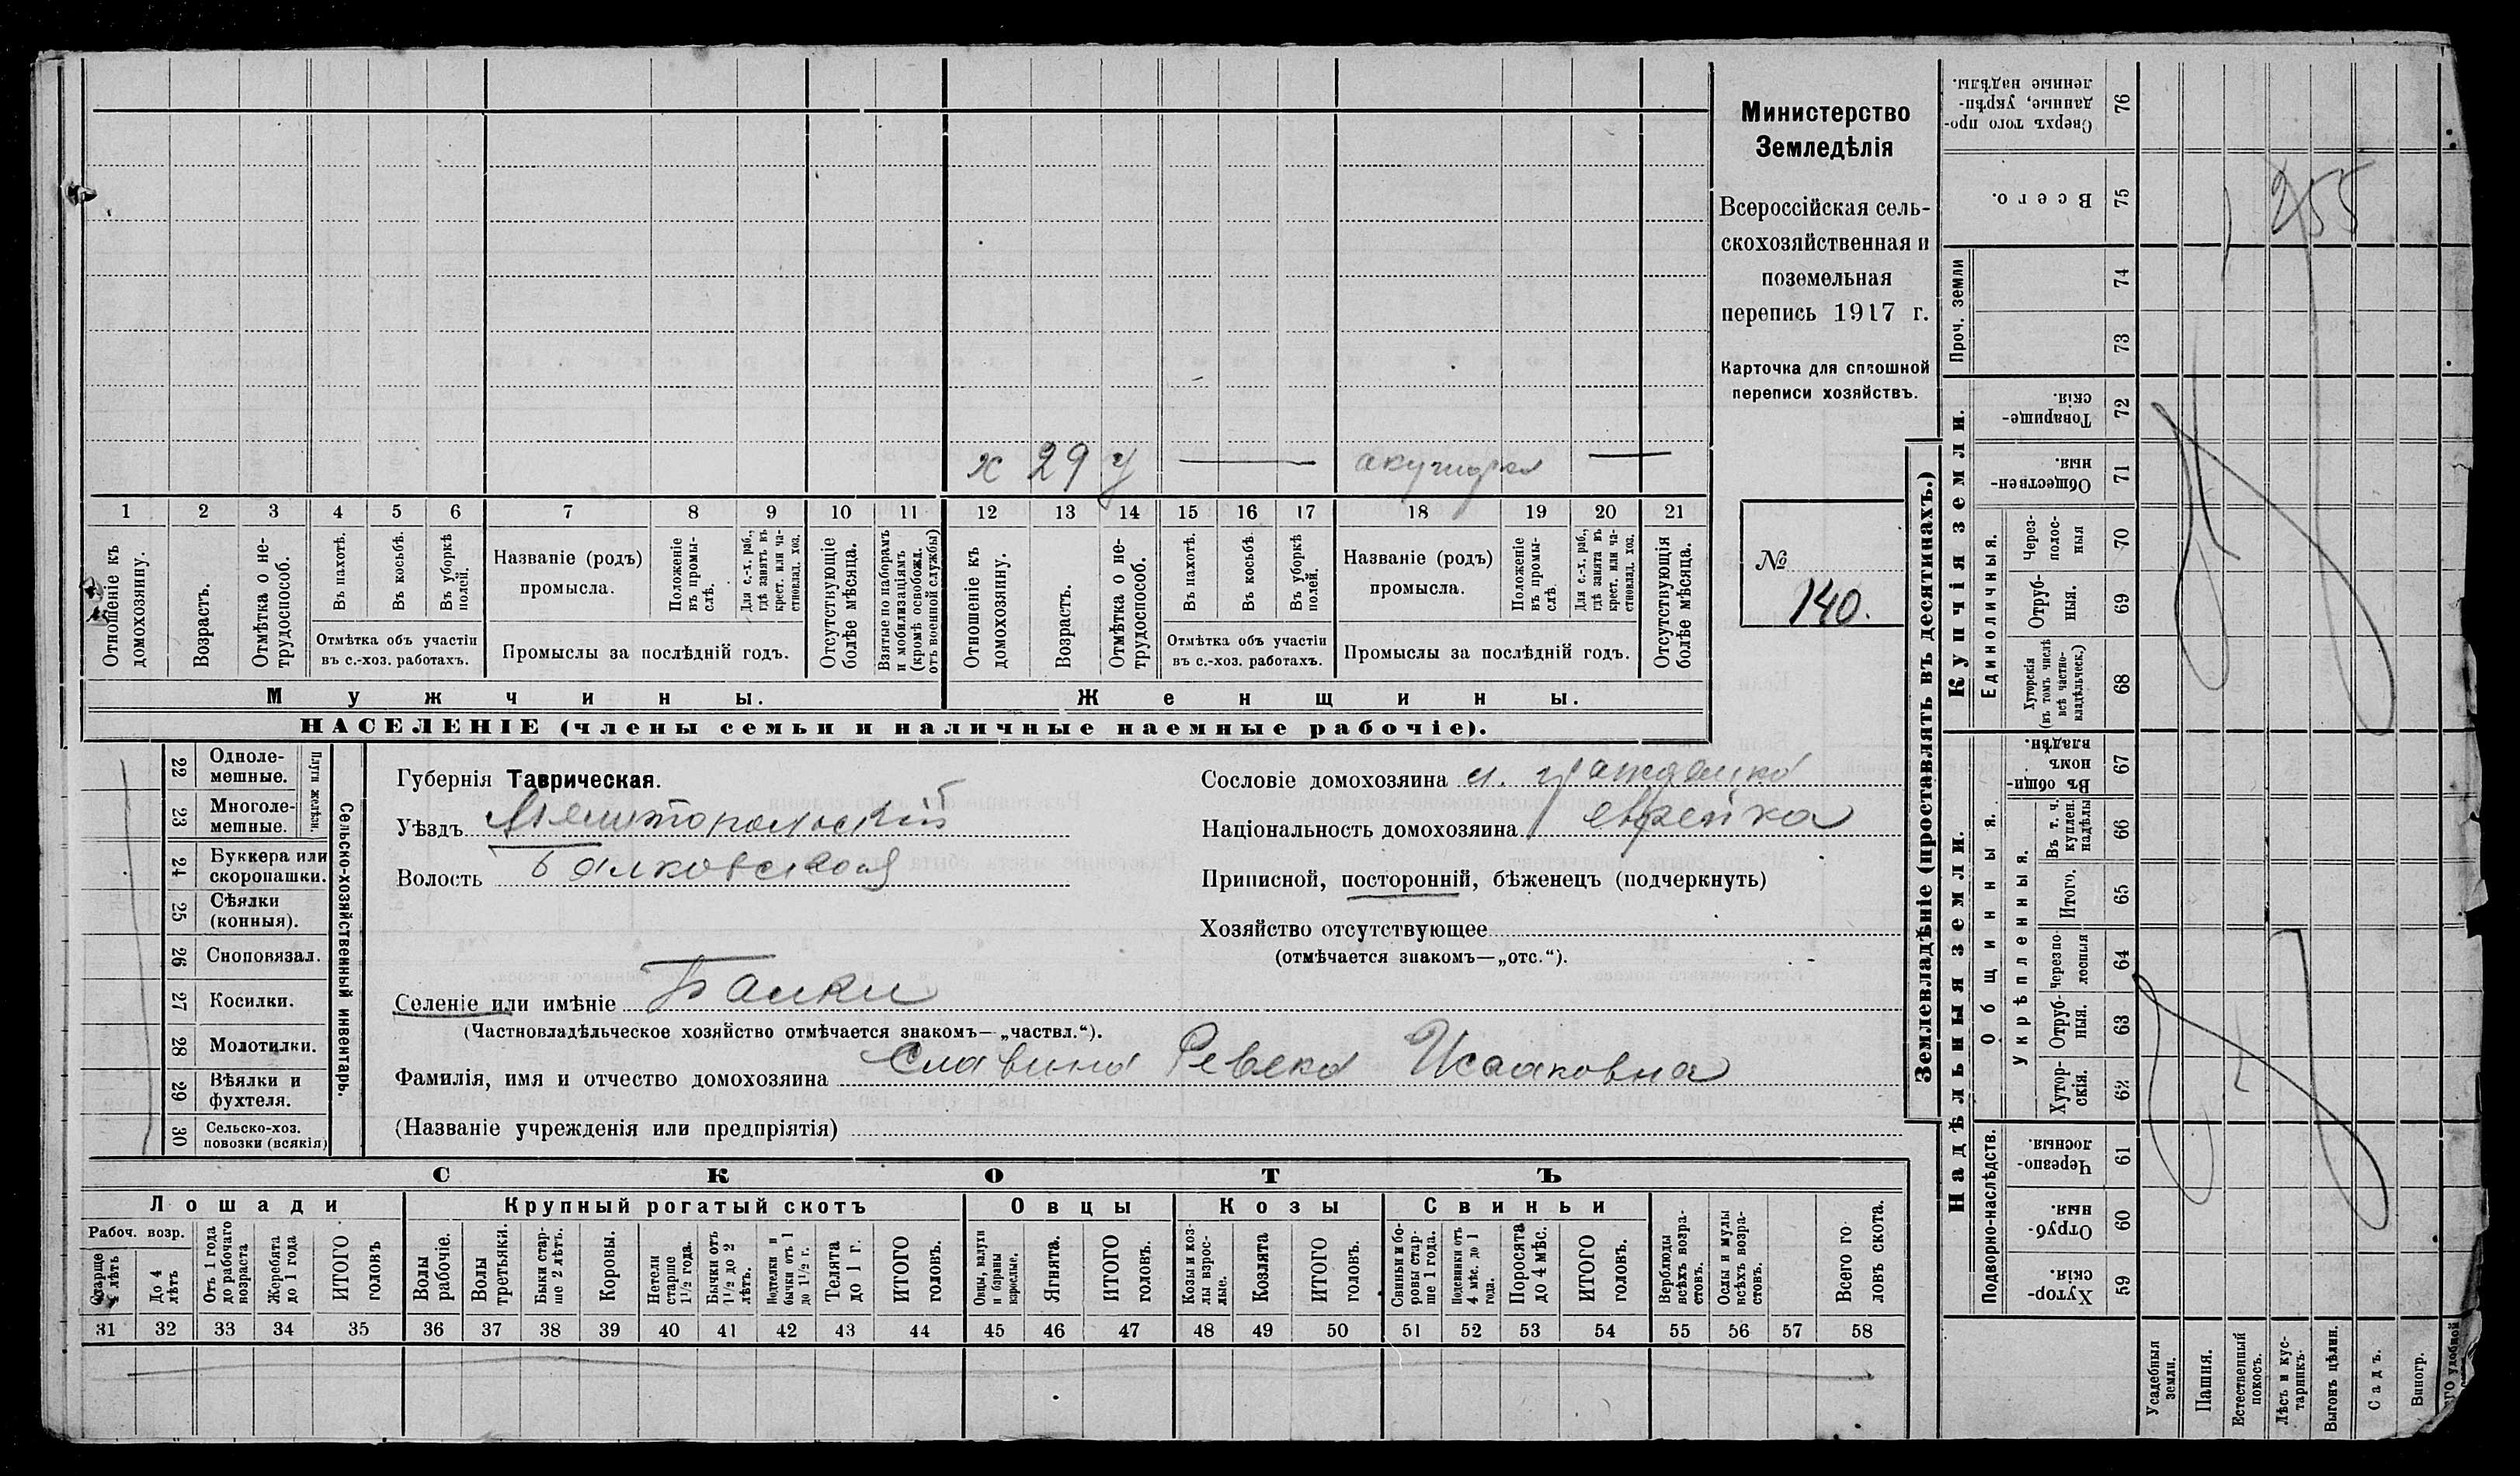 х 29 у — акушерка —
1 2 3 4 5 6 7 8 9 10 11 12 13 14 15 16 17 18 19 20 21
Отношеніе къ домохозяину.
Возрастъ.
Отмѣтка о не-трудоспособ.
Въ пахотѣ.
Въ косьбѣ.
Въ уборкѣ полей.
Отмѣтка объ участіи
въ с.-хоз. работахъ.
Названіе (родъ)
промысла.
Положеніе въ промы-слѣ.
Для с.-х. раб., гдѣ занятъ въ крест. или ча-стновлад. хоз.
Промыслы за послѣдній годъ.
Отсутствующіе болѣе мѣсяца.
Взятые по наборамъ и мобилизаціямъ (кромѣ освобожд. отъ военной службы)
Отношеніе къ домохозяину.
Возрастъ.
Отмѣтка о не-трудоспособ.
Въ пахотѣ.
Въ косьбѣ.
Въ уборкѣ полей.
Отмѣтка объ участіи
въ с.-хоз. работахъ.
Названіе (родъ)
промысла.
Положеніе въ промы-слѣ
Для с.-х. раб., гдѣ занята въ крест. или ча-стновлад. хоз.
Промыслы за послѣдній годъ.
Отсутствующія болѣе мѣсяца.
Мужчины.
Женщины.
НАСЕЛЕНІЕ (члены семьи и наличные наемные рабочіе).
Министерство
Земледѣлія
Всероссійская сель-
скохозяйственная и
поземельная
перепись 1917 г.
Карточка для сплошной
переписи хозяйствъ.
№
140.
22 Одноле-мешные.
23 Многоле-мешные.
Плуги желѣзн.
24 Буккера или скоропашки.
25 Сѣялки (конныя).
26 Сноповязал.
27 Косилки.
28 Молотилки.
29 Вѣялки и фухтеля.
30 Сельско-хоз. повозки (всякія)
Сельско-хозяйственный инвентарь.
Губернія Таврическая.
Уѣздъ Мелитопольскій
Волость Балковская
Сословіе домохозяина гражданка
Національность домохозяина еврейка
Приписной, посторонній, бѣженецъ (подчеркнуть)
Хозяйство отсутствующее
(отмѣчается знакомъ—„отс.“).
Селеніе или имѣніе Балки
(Частновладѣльческое хозяйство отмѣчается знакомъ—„частвл.“).
Фамилія, имя и отчество домохозяина Славина Ревека Исааковна
(Названіе учрежденія или предпріятія)
СКОТЪ
Лошади
Крупный рогатый скотъ
Овцы
Козы
Свиньи
Рабоч. возр.
Старше 4 лѣтъ
До 4 лѣтъ
Отъ 1 года до рабочаго возраста
Жеребята до 1 года
ИТОГО головъ
Волы рабочіе.
Волы третьяки.
Быки стар-ше 2 лѣтъ.
Коровы.
Нетели старше 1½ года.
Бычки отъ 1½ до 2 лѣтъ.
Нетелки и бычки отъ 1 до 1½ г.
Телята до 1 г.
ИТОГО головъ.
Овцы, валухи и бараны взрослые.
Ягнята.
ИТОГО головъ.
Козы и коз-лы взрос-лые.
Козлята
ИТОГО головъ.
Свиньи и бо-ровы стар-ше 1 года.
Подсвинки отъ 4 мѣс. до 1 года.
Поросята до 4 мѣс.
ИТОГО головъ.
Верблюды всѣхъ возра-стовъ.
Ослы и мулы всѣхъ возра-стовъ.
Всего го-ловъ скота.
31 32 33 34 35 36 37 38 39 40 41 42 43 44 45 46 47 48 49 50 51 52 53 54 55 56 57 58
Землевладѣніе (проставлять въ десятинахъ.)
Купчія земли.
Надѣльныя земли.
Проч. земли
Единоличныя.
Общинныя.
Укрѣпленныя.
Подворно-наслѣдств.
Сверхъ того про-данные, укрѣп-ленные надѣлы. 76
Всего. 75
255
74
73
Товарище-скія. 72
Обществен-ныя. 71
Через-полос-ныя 70
Отруб-ныя. 69
Хуторскія (въ томъ числѣ всѣ частно-владѣльческ.) 68
Въ общин-номъ владѣн. 67
Въ т. ч. куплен. надѣлы 66
Итого. 65
Черезпо-лосныя 64
Отруб-ныя. 63
Хутор-скія. 62
Черезпо-лосныя 61
Отруб-ныя. 60
Хутор-скія. 59
Усадебныя земли.
Пашня.
Естественный покосъ.
Лѣсъ и кус-тарникъ.
Выгонъ цѣлин.
Садъ.
Виногр.